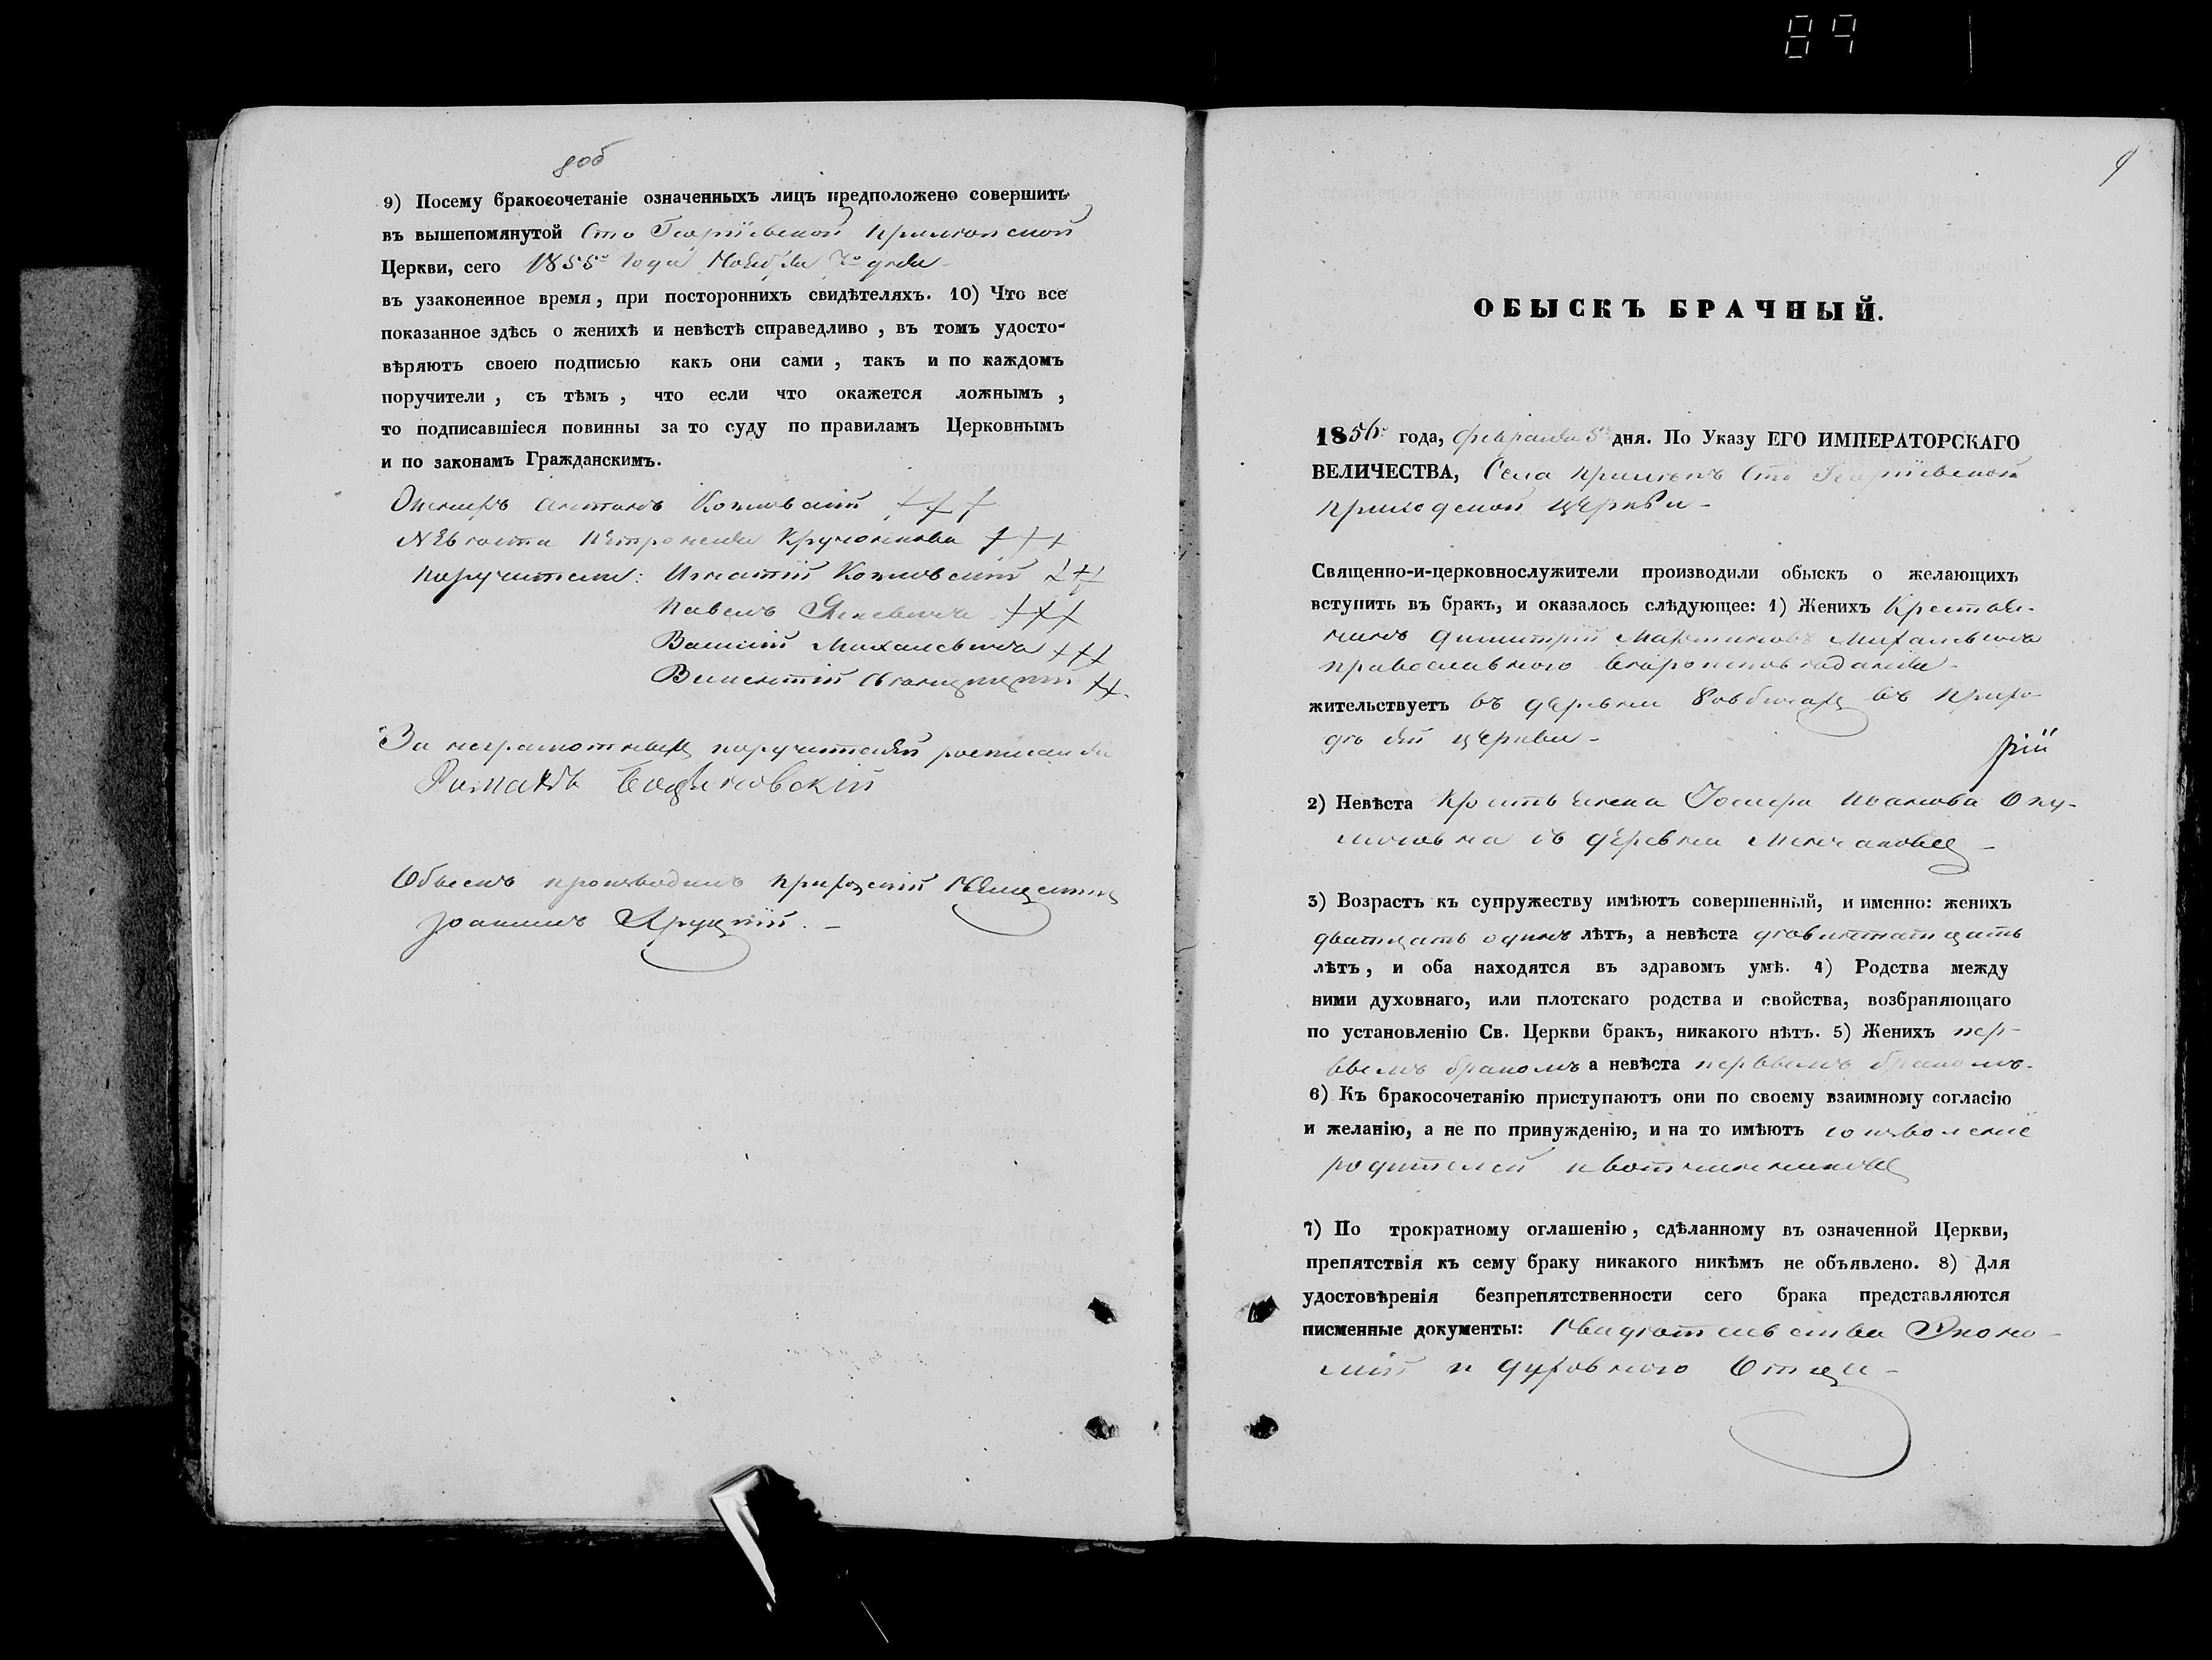 89
8об
9) Посему бракосочетаніе означенныхъ лицъ предположено совершить
въ вышепомянутой Сто Георгіевской
Церкви, сего 1855го года Ноября 7го дня
въ узаконенное время, при постороннихъ свидѣтеляхъ. 10) Что все
показанное здѣсь о женихѣ и невѣстѣ справедливо, въ томъ удосто-
вѣряютъ своею подписью какъ они сами, такъ и по каждомъ
поручители, съ тѣмъ, что если что окажется ложнымъ,
то подписавшіеся повинны за то суду по правиламъ Церковнымъ
и по законамъ Гражданскимъ.
Антонъ Козловскій +++
Невѣста Петронеля +++
Поручители: Игнатій Козловскій +++
Павелъ +++
Василій Михалевичъ +++
Викентій ++
За неграмотныхъ поручителей росписался
Романъ
Обыскъ производилъ приходскій Священникъ
Іоаннъ
9
ОБЫСКЪ БРАЧНЫЙ.
1856го года, Февраля 5го дня. По Указу ЕГО ИМПЕРАТОРСКАГО
ВЕЛИЧЕСТВА, Села Сто Георгіевской
приходской церкви -
Священно-и-церковнослужители производили обыскъ о желающихъ
вступить въ бракъ, и оказалось слѣдующее: 1) Женихъ Крестья-
нинъ Димитрій Мартиновъ Михалевичъ
православного вѣроисповѣданія -
жительствуетъ въ деревни въ прихо-
дѣ сей церкви -
рій
2) Невѣста Крестьянка Іванова
съ деревни
3) Возрастъ къ супружеству имѣютъ совершенный, и именно: женихъ
дватцать одинъ лѣтъ, а невѣста девятнатцать
лѣтъ, и оба находятся въ здравомъ умѣ. 4) Родства между
ними духовнаго, или плотскаго родства и свойства, возбраняющаго
по установленію Св. Церкви бракъ, никакого нѣтъ. 5) Женихъ пер-
вымъ бракомъ а невѣста первымъ бракомъ.
6) Къ бракосочетанію приступаютъ они по своему взаимному согласію
и желанію, а не по принужденію, и на то имѣютъ соизволеніе
родителей и вотчинниковъ
7) По трократному оглашенію, сдѣланному въ означенной Церкви,
препятствія къ сему браку никакого никѣмъ не объявлено. 8) Для
удостовѣренія безпрепятственности сего брака представляются
писменные документы: Свидѣтельства Эконо-
міи и духовного Отца -